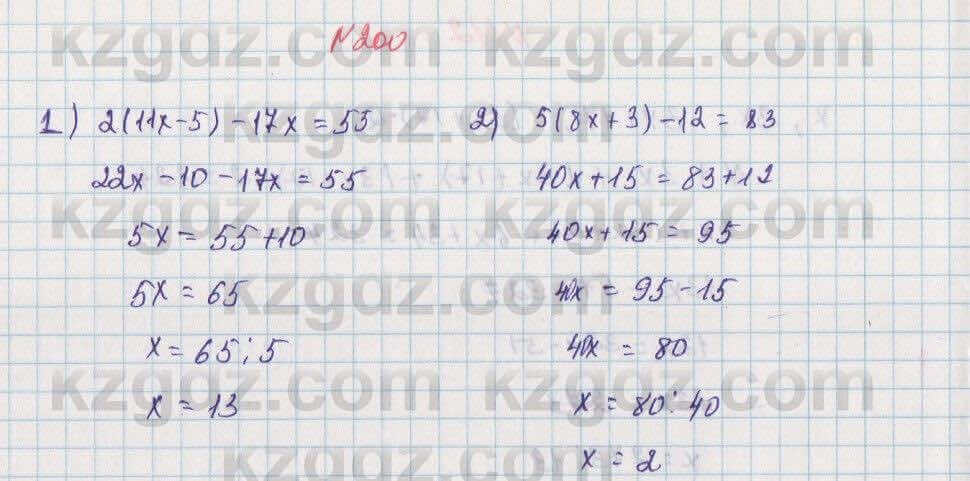 N200
1) 2(11x-5)-17x=55
22x-10-17x=55
5x=55+10
5x=65
x=65:5
x=13
2) 5(8x+3)-12=83
40x+15=83+12
40x+15=95
40x=95-15
40x=80
x=80:40
x=2
kzgdz.com
kzgdz.com
kzgdz.com
kzgdz.com
kzgdz.com
kzgdz.com
kzgdz.com
kzgdz.com